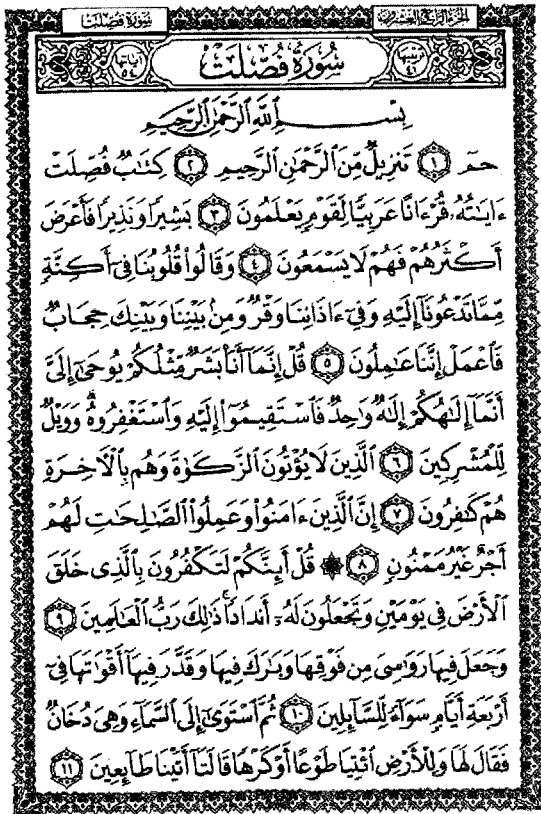 الجزء الرابع والعشرون سورة فصلت
ترتيبها ٤١ سورة فصلت آياتها ٥٤
بِسْمِ ٱللَّهِ ٱلرَّحْمَٰنِ ٱلرَّحِيمِ
حمٓ ١ تَنزِيلٌ مِّنَ ٱلرَّحْمَٰنِ ٱلرَّحِيمِ ٢ كِتَٰبٌ فُصِّلَتْ
ءَايَٰتُهُۥ قُرْءَانًا عَرَبِيًّا لِّقَوْمٍ يَعْلَمُونَ ٣ بَشِيرًا وَنَذِيرًا فَأَعْرَضَ
أَكْثَرُهُمْ فَهُمْ لَا يَسْمَعُونَ ٤ وَقَالُوا۟ قُلُوبُنَا فِىٓ أَكِنَّةٍ
مِّمَّا تَدْعُونَآ إِلَيْهِ وَفِىٓ ءَاذَانِنَا وَقْرٌ وَمِنۢ بَيْنِنَا وَبَيْنِكَ حِجَابٌ
فَٱعْمَلْ إِنَّنَا عَٰمِلُونَ ٥ قُلْ إِنَّمَآ أَنَا۠ بَشَرٌ مِّثْلُكُمْ يُوحَىٰٓ إِلَىَّ
أَنَّمَآ إِلَٰهُكُمْ إِلَٰهٌ وَٰحِدٌ فَٱسْتَقِيمُوٓا۟ إِلَيْهِ وَٱسْتَغْفِرُوهُ ۗ وَوَيْلٌ
لِّلْمُشْرِكِينَ ٦ ٱلَّذِينَ لَا يُؤْتُونَ ٱلزَّكَوٰةَ وَهُم بِٱلْءَاخِرَةِ
هُمْ كَٰفِرُونَ ٧ إِنَّ ٱلَّذِينَ ءَامَنُوا۟ وَعَمِلُوا۟ ٱلصَّٰلِحَٰتِ لَهُمْ
أَجْرٌ غَيْرُ مَمْنُونٍ ٨ ۞ قُلْ أَئِنَّكُمْ لَتَكْفُرُونَ بِٱلَّذِى خَلَقَ
ٱلْأَرْضَ فِى يَوْمَيْنِ وَتَجْعَلُونَ لَهُۥٓ أَندَادًا ۚ ذَٰلِكَ رَبُّ ٱلْعَٰلَمِينَ ٩
وَجَعَلَ فِيهَا رَوَٰسِىَ مِن فَوْقِهَا وَبَٰرَكَ فِيهَا وَقَدَّرَ فِيهَآ أَقْوَٰتَهَا فِىٓ
أَرْبَعَةِ أَيَّامٍ سَوَآءً لِّلسَّآئِلِينَ ١٠ ثُمَّ ٱسْتَوَىٰٓ إِلَى ٱلسَّمَآءِ وَهِىَ دُخَانٌ
فَقَالَ لَهَا وَلِلْأَرْضِ ٱئْتِيَا طَوْعًا أَوْ كَرْهًا قَالَتَآ أَتَيْنَا طَآئِعِينَ ١١